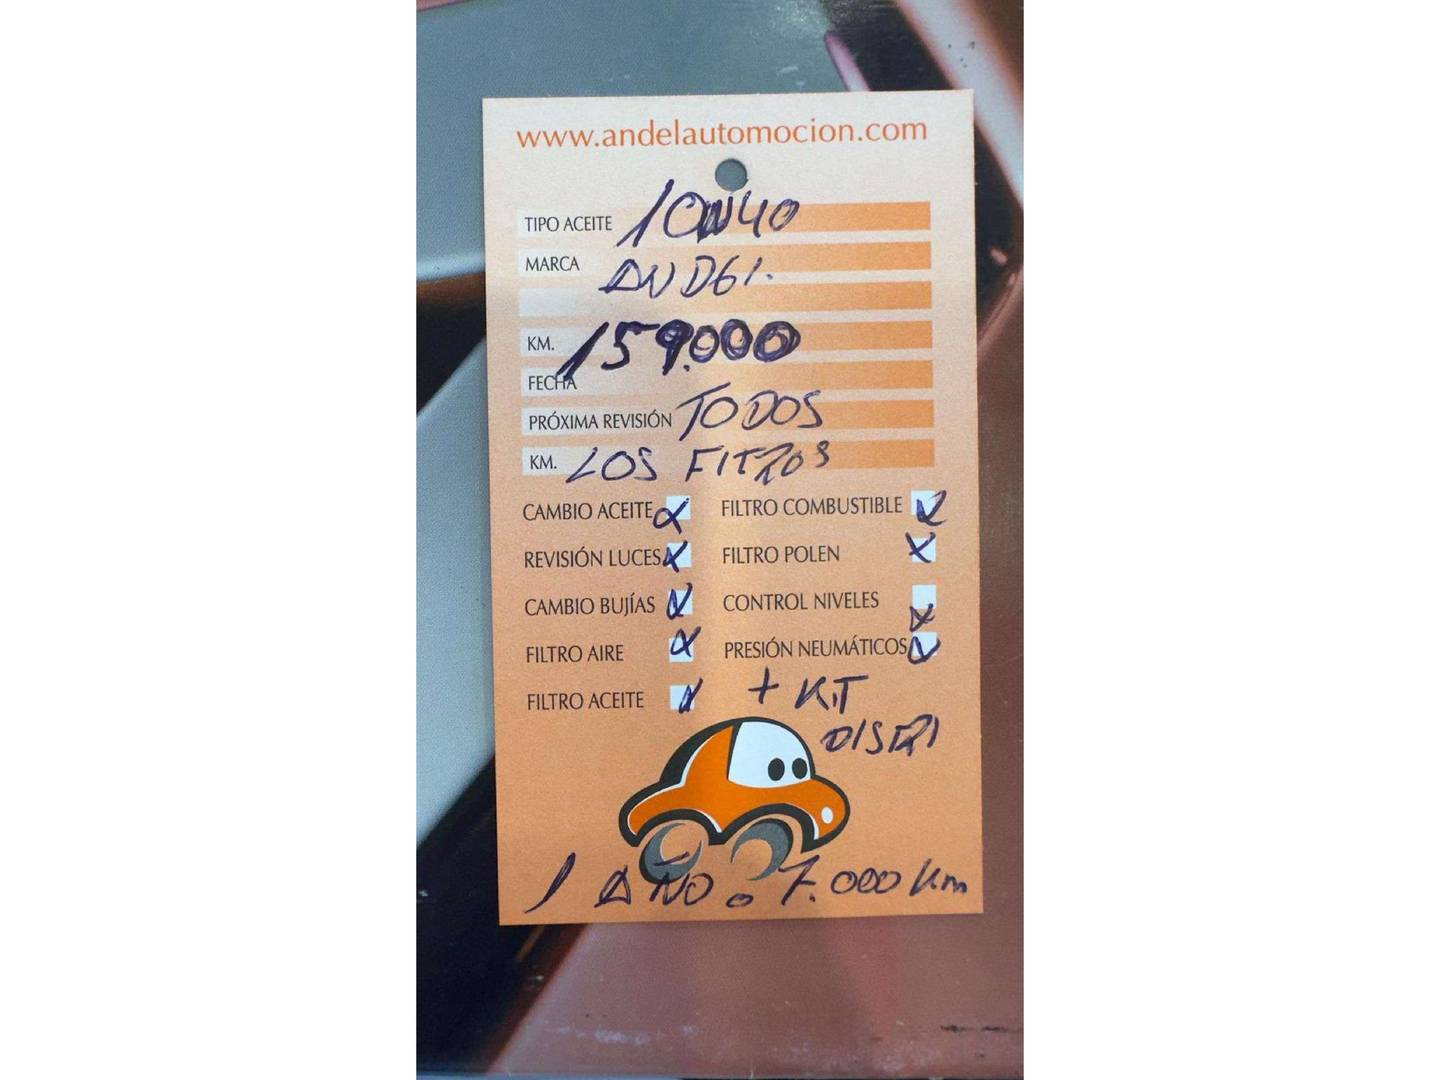 www.andelautomocion.com
TIPO ACEITE 10W40
MARCA ANDEL.
KM. 159.000
FECHA
PRÓXIMA REVISIÓN TODOS
KM. LOS FITROS
CAMBIO ACEITE X FILTRO COMBUSTIBLE X
REVISIÓN LUCES X FILTRO POLEN X
CAMBIO BUJÍAS X CONTROL NIVELES X
FILTRO AIRE X PRESIÓN NEUMÁTICOS X
FILTRO ACEITE X + KIT
DISTRI
1 AÑO o 7.000 Km